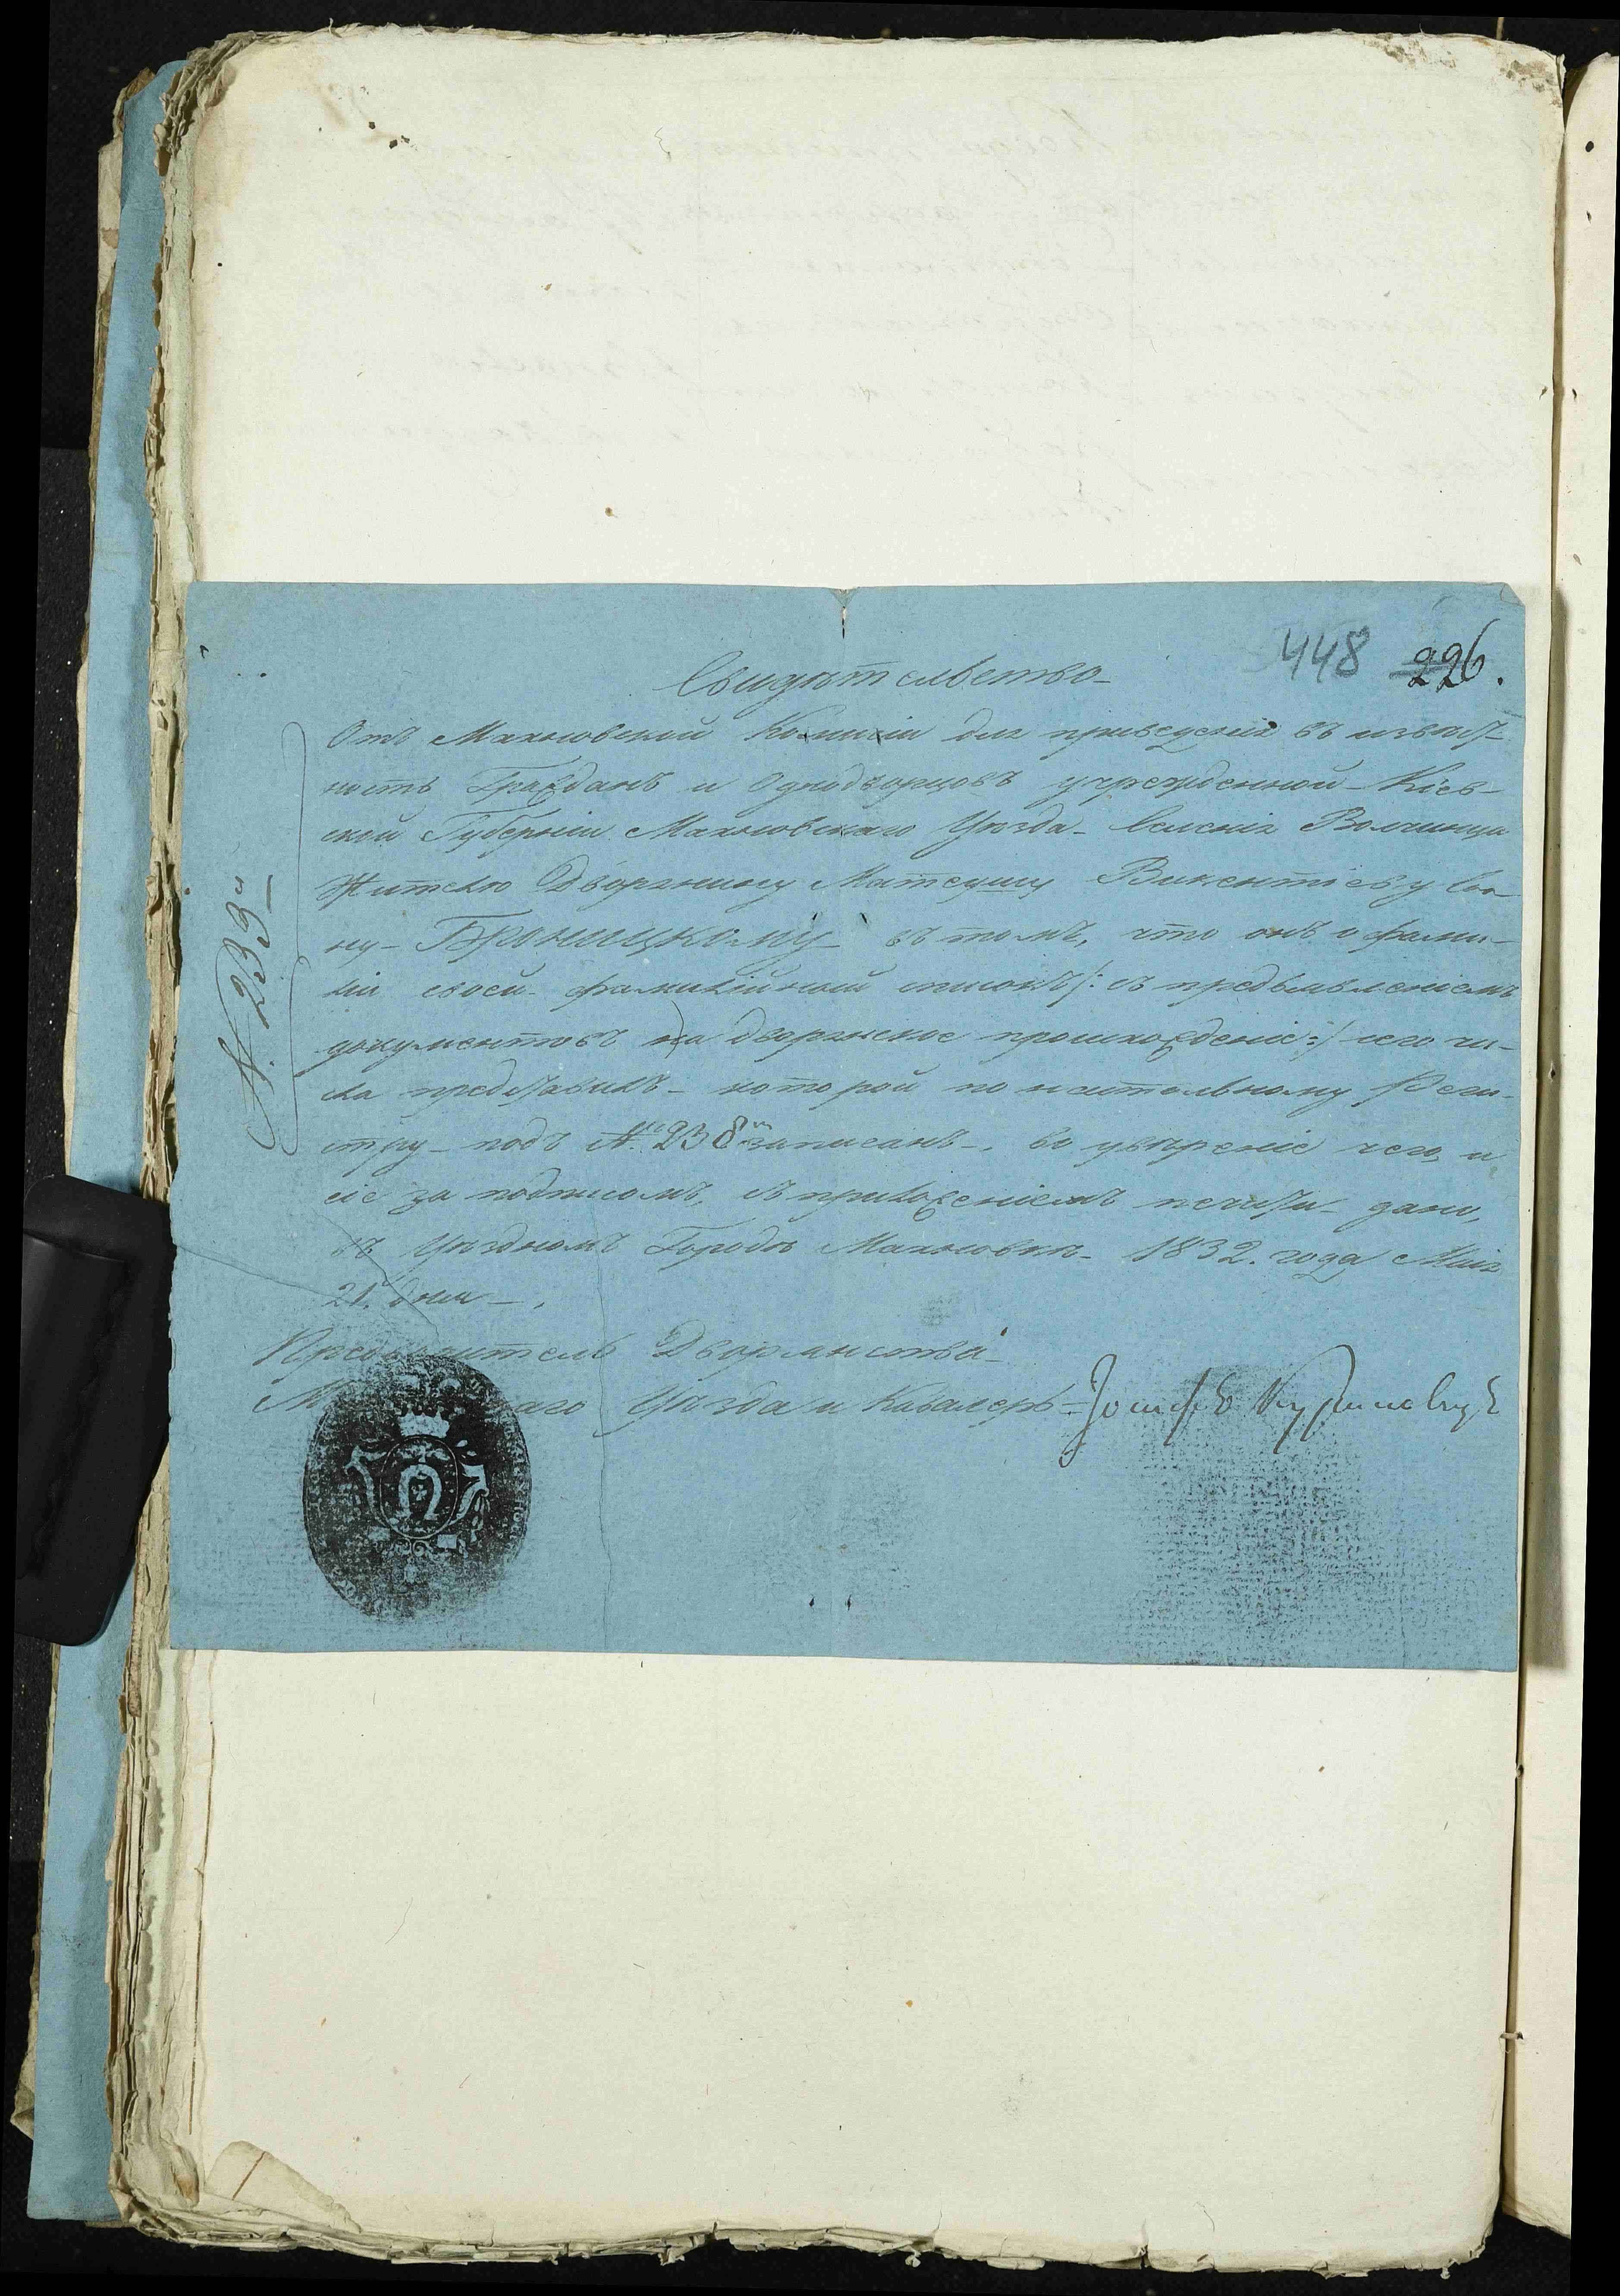 448 226.
Свидѣтельство
Отъ Махновской Комисіи для приведенія въ извѣст-
ность Гражданъ и Однодворцовъ учрежденной Кіев-
ской Губерніи Махновскаго Уѣзда Селенія Волчинца
Жителю Дворянину Матеушу Викентіеву Сы-
ну Броницкому въ томъ, что онъ о фами-
ліи своей фамилійный списокъ /: съ предъявленіемъ
документовъ на дворянское происхожденіе :/ сего чи-
сла представилъ которой по носительному Реги-
стру подъ № 238 записанъ, во увѣреніе чего и
сіе за подписомъ, съ приложеніемъ печати дано,
въ Уѣздномъ Городѣ Махновкѣ 1832. года Маія
21. дня
Предводитель Дворянства
Уѣзда и Кавалеръ Іосифъ
№ 233